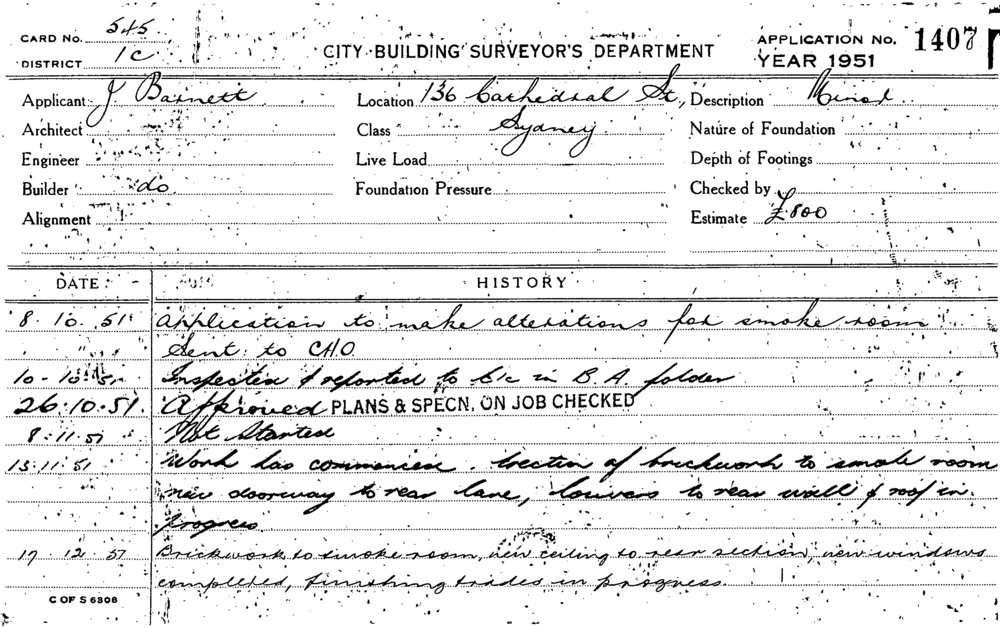 CARD No. 545
DISTRICT 1C
CITY BUILDING SURVEYOR'S DEPARTMENT
APPLICATION No. 1407
YEAR 1951
Applicant J Barnett
Location 136 Cathedral St,
Description Minor
Architect
Class Sydney
Nature of Foundation
Engineer
Live Load
Depth of Footings
Builder do
Foundation Pressure
Checked by
Alignment
Estimate £800
DATE HISTORY
8. 10. 51 Application to make alterations for smoke room
Sent to CHO
10-10-51 Inspected & reported to in B.A. folder
26.10.51. Approved PLANS & SPECN. ON JOB CHECKED
8.11.51 Not Started
13.11.51 Work has commenced. Erection of brickwork to smoke room
new doorway to rear lane, louvers to rear wall & roof in
progress
17 12 51 Brickwork to smoke room, new ceiling to rear section, new windows
completed, finishing trades in progress.
C OF S 6308